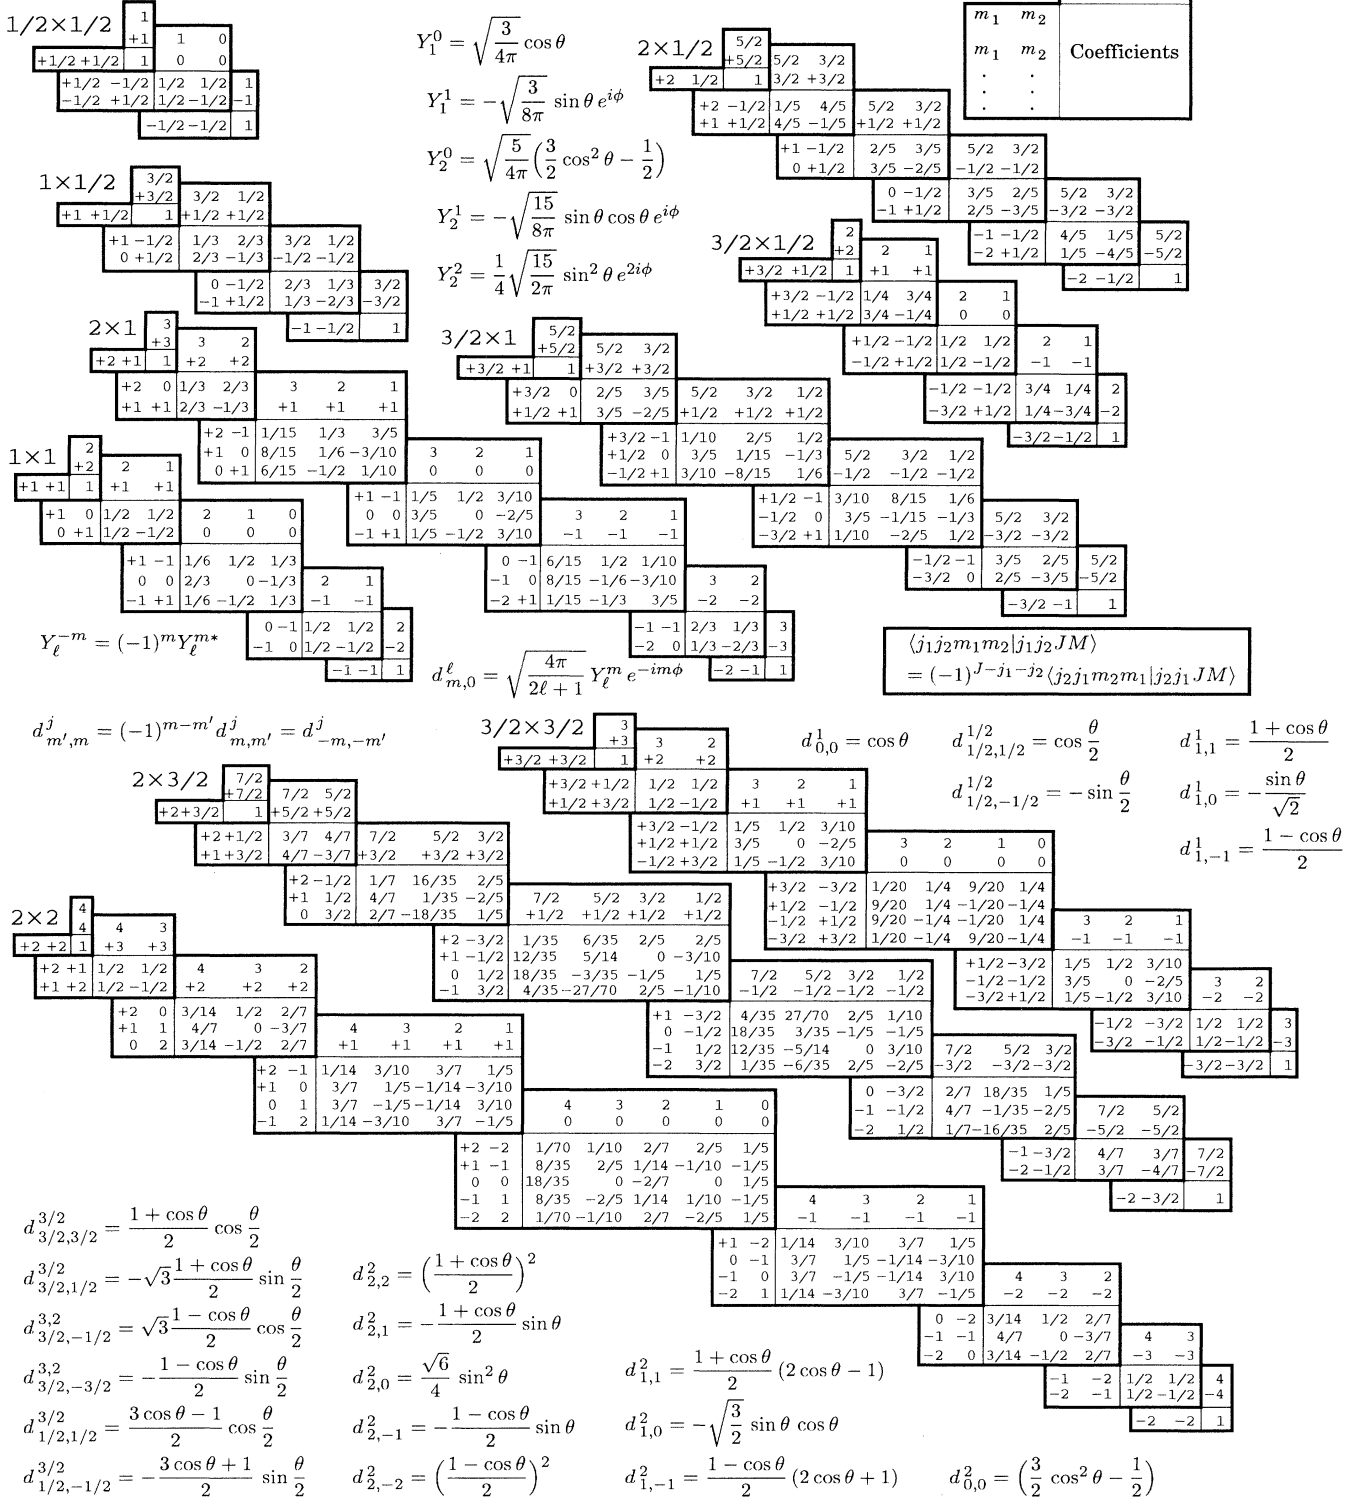 1/2×1/2
1
+1 1 0
+1/2 +1/2 1 0 0
+1/2 −1/2 1/2 1/2 1
−1/2 +1/2 1/2 −1/2 −1
−1/2 −1/2 1
Y_1^0 = √(3/4π) cos θ
Y_1^1 = −√(3/8π) sin θ e^{iϕ}
Y_2^0 = √(5/4π) (3/2 cos² θ − 1/2)
Y_2^1 = −√(15/8π) sin θ cos θ e^{iϕ}
Y_2^2 = 1/4 √(15/2π) sin² θ e^{2iϕ}
m_1 m_2
m_1 m_2 Coefficients
. .
. .
. .
2×1/2
5/2
+5/2 5/2 3/2
+2 1/2 1 3/2 +3/2
+2 −1/2 1/5 4/5 5/2 3/2
+1 +1/2 4/5 −1/5 +1/2 +1/2
+1 −1/2 2/5 3/5 5/2 3/2
0 +1/2 3/5 −2/5 −1/2 −1/2
0 −1/2 3/5 2/5 5/2 3/2
−1 +1/2 2/5 −3/5 −3/2 −3/2
−1 −1/2 4/5 1/5 5/2
−2 +1/2 1/5 −4/5 −5/2
−2 −1/2 1
1×1/2
3/2
+3/2 3/2 1/2
+1 +1/2 1 +1/2 +1/2
+1 −1/2 1/3 2/3 3/2 1/2
0 +1/2 2/3 −1/3 −1/2 −1/2
0 −1/2 2/3 1/3 3/2
−1 +1/2 1/3 −2/3 −3/2
−1 −1/2 1
3/2×1/2
2
+2 2 1
+3/2 +1/2 1 +1 +1
+3/2 −1/2 1/4 3/4 2 1
+1/2 +1/2 3/4 −1/4 0 0
+1/2 −1/2 1/2 1/2 2 1
−1/2 +1/2 1/2 −1/2 −1 −1
−1/2 −1/2 3/4 1/4 2
−3/2 +1/2 1/4 −3/4 −2
−3/2 −1/2 1
2×1
3
+3 3 2
+2 +1 1 +2 +2
+2 0 1/3 2/3 3 2 1
+1 +1 2/3 −1/3 +1 +1 +1
+2 −1 1/15 1/3 3/5
+1 0 8/15 1/6 −3/10 3 2 1
0 +1 6/15 −1/2 1/10 0 0 0
+1 −1 1/5 1/2 3/10
0 0 3/5 0 −2/5 3 2 1
−1 +1 1/5 −1/2 3/10 −1 −1 −1
0 −1 6/15 1/2 1/10
−1 0 8/15 −1/6 −3/10 3 2
−2 +1 1/15 −1/3 3/5 −2 −2
−1 −1 2/3 1/3 3
−2 0 1/3 −2/3 −3
−2 −1 1
3/2×1
5/2
+5/2 5/2 3/2
+3/2 +1 1 +3/2 +3/2
+3/2 0 2/5 3/5 5/2 3/2 1/2
+1/2 +1 3/5 −2/5 +1/2 +1/2 +1/2
+3/2 −1 1/10 2/5 1/2
+1/2 0 3/5 1/15 −1/3 5/2 3/2 1/2
−1/2 +1 3/10 −8/15 1/6 −1/2 −1/2 −1/2
+1/2 −1 3/10 8/15 1/6
−1/2 0 3/5 −1/15 −1/3 5/2 3/2
−3/2 +1 1/10 −2/5 1/2 −3/2 −3/2
−1/2 −1 3/5 2/5 5/2
−3/2 0 2/5 −3/5 −5/2
−3/2 −1 1
1×1
2
+2 2 1
+1 +1 1 +1 +1
+1 0 1/2 1/2 2 1 0
0 +1 1/2 −1/2 0 0 0
+1 −1 1/6 1/2 1/3
0 0 2/3 0 −1/3 2 1
−1 +1 1/6 −1/2 1/3 −1 −1
0 −1 1/2 1/2 2
−1 0 1/2 −1/2 −2
−1 −1 1
Y_ℓ^{−m} = (−1)^m Y_ℓ^{m∗}
d^ℓ_{m,0} = √(4π/(2ℓ+1)) Y_ℓ^m e^{−imϕ}
⟨j_1 j_2 m_1 m_2|j_1 j_2 JM⟩
= (−1)^{J−j_1−j_2} ⟨j_2 j_1 m_2 m_1|j_2 j_1 JM⟩
d^j_{m′,m} = (−1)^{m−m′} d^j_{m,m′} = d^j_{−m,−m′}
d^1_{0,0} = cos θ
d^{1/2}_{1/2,1/2} = cos θ/2
d^1_{1,1} = (1+cos θ)/2
d^{1/2}_{1/2,−1/2} = −sin θ/2
d^1_{1,0} = −sin θ/√2
d^1_{1,−1} = (1−cos θ)/2
3/2×3/2
3
+3 3 2
+3/2 +3/2 1 +2 +2
+3/2 +1/2 1/2 1/2 3 2 1
+1/2 +3/2 1/2 −1/2 +1 +1 +1
+3/2 −1/2 1/5 1/2 3/10
+1/2 +1/2 3/5 0 −2/5 3 2 1 0
−1/2 +3/2 1/5 −1/2 3/10 0 0 0 0
+3/2 −3/2 1/20 1/4 9/20 1/4
+1/2 −1/2 9/20 1/4 −1/20 −1/4
−1/2 +1/2 9/20 −1/4 −1/20 1/4 3 2 1
−3/2 +3/2 1/20 −1/4 9/20 −1/4 −1 −1 −1
+1/2 −3/2 1/5 1/2 3/10
−1/2 −1/2 3/5 0 −2/5 3 2
−3/2 +1/2 1/5 −1/2 3/10 −2 −2
−1/2 −3/2 1/2 1/2 3
−3/2 −1/2 1/2 −1/2 −3
−3/2 −3/2 1
2×3/2
7/2
+7/2 7/2 5/2
+2 +3/2 1 +5/2 +5/2
+2 +1/2 3/7 4/7 7/2 5/2 3/2
+1 +3/2 4/7 −3/7 +3/2 +3/2 +3/2
+2 −1/2 1/7 16/35 2/5
+1 1/2 4/7 1/35 −2/5 7/2 5/2 3/2 1/2
0 3/2 2/7 −18/35 1/5 +1/2 +1/2 +1/2 +1/2
+2 −3/2 1/35 6/35 2/5 2/5
+1 −1/2 12/35 5/14 0 −3/10
0 1/2 18/35 −3/35 −1/5 1/5 7/2 5/2 3/2 1/2
−1 3/2 4/35 −27/70 2/5 −1/10 −1/2 −1/2 −1/2 −1/2
+1 −3/2 4/35 27/70 2/5 1/10
0 −1/2 18/35 3/35 −1/5 −1/5
−1 1/2 12/35 −5/14 0 3/10 7/2 5/2 3/2
−2 3/2 1/35 −6/35 2/5 −2/5 −3/2 −3/2 −3/2
0 −3/2 2/7 18/35 1/5
−1 −1/2 4/7 −1/35 −2/5 7/2 5/2
−2 1/2 1/7 −16/35 2/5 −5/2 −5/2
−1 −3/2 4/7 3/7 7/2
−2 −1/2 3/7 −4/7 −7/2
−2 −3/2 1
2×2
4
4 4 3
+2 +2 1 +3 +3
+2 +1 1/2 1/2 4 3 2
+1 +2 1/2 −1/2 +2 +2 +2
+2 0 3/14 1/2 2/7
+1 1 4/7 0 −3/7 4 3 2 1
0 2 3/14 −1/2 2/7 +1 +1 +1 +1
+2 −1 1/14 3/10 3/7 1/5
+1 0 3/7 1/5 −1/14 −3/10
0 1 3/7 −1/5 −1/14 3/10 4 3 2 1 0
−1 2 1/14 −3/10 3/7 −1/5 0 0 0 0 0
+2 −2 1/70 1/10 2/7 2/5 1/5
+1 −1 8/35 2/5 1/14 −1/10 −1/5
0 0 18/35 0 −2/7 0 1/5
−1 1 8/35 −2/5 1/14 1/10 −1/5 4 3 2 1
−2 2 1/70 −1/10 2/7 −2/5 1/5 −1 −1 −1 −1
+1 −2 1/14 3/10 3/7 1/5
0 −1 3/7 1/5 −1/14 −3/10
−1 0 3/7 −1/5 −1/14 3/10 4 3 2
−2 1 1/14 −3/10 3/7 −1/5 −2 −2 −2
0 −2 3/14 1/2 2/7
−1 −1 4/7 0 −3/7 4 3
−2 0 3/14 −1/2 2/7 −3 −3
−1 −2 1/2 1/2 4
−2 −1 1/2 −1/2 −4
−2 −2 1
d^{3/2}_{3/2,3/2} = (1+cos θ)/2 cos θ/2
d^{3/2}_{3/2,1/2} = −√3 (1+cos θ)/2 sin θ/2
d^{3,2}_{3/2,−1/2} = √3 (1−cos θ)/2 cos θ/2
d^{3,2}_{3/2,−3/2} = −(1−cos θ)/2 sin θ/2
d^{3/2}_{1/2,1/2} = (3 cos θ−1)/2 cos θ/2
d^{3/2}_{1/2,−1/2} = −(3 cos θ+1)/2 sin θ/2
d^2_{2,2} = ((1+cos θ)/2)^2
d^2_{2,1} = −(1+cos θ)/2 sin θ
d^2_{2,0} = √6/4 sin² θ
d^2_{2,−1} = −(1−cos θ)/2 sin θ
d^2_{2,−2} = ((1−cos θ)/2)^2
d^2_{1,1} = (1+cos θ)/2 (2 cos θ − 1)
d^2_{1,0} = −√(3/2) sin θ cos θ
d^2_{1,−1} = (1−cos θ)/2 (2 cos θ + 1)
d^2_{0,0} = (3/2 cos² θ − 1/2)